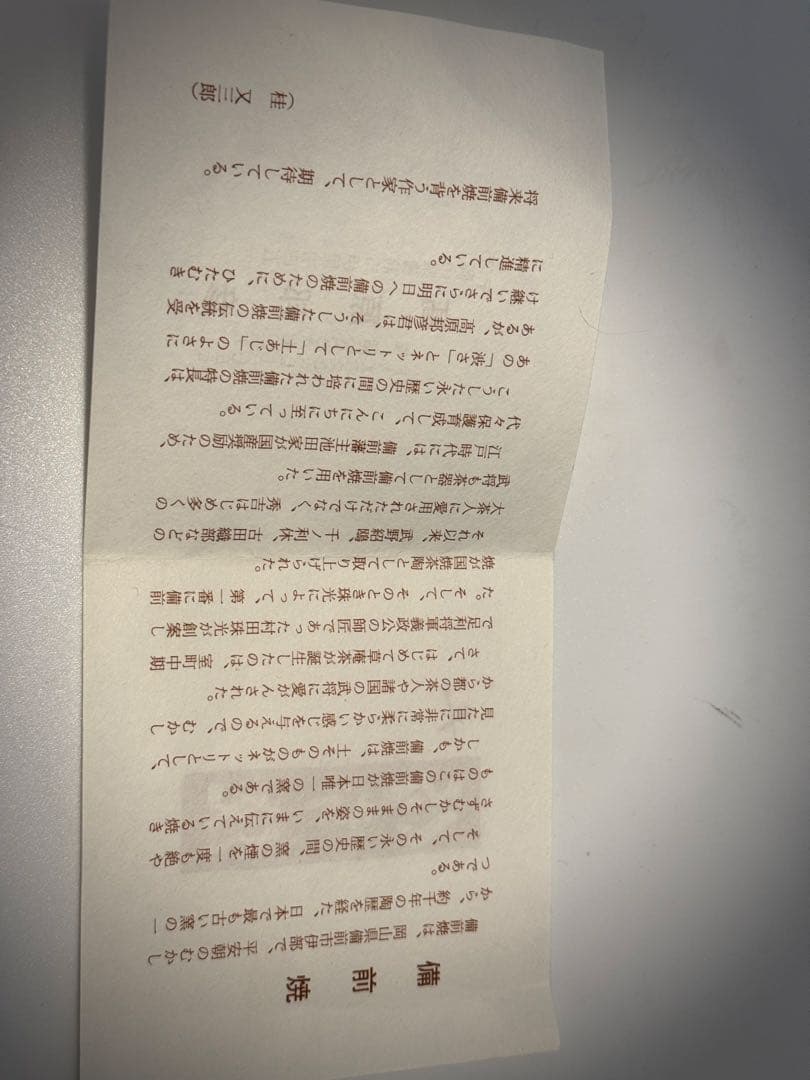 備前焼
備前焼は、岡山県備前市伊部で、平安朝のむかし
から、約千年の陶歴を経た、日本で最も古い窯の一
つである。
そして、その永い歴史の間、窯の煙を一度も絶や
さずむかしそのままの姿を、いまに伝えている焼き
ものはこの備前焼が日本唯一の窯である。
しかも、備前焼は、土そのものがネットリとして、
見た目に非常に柔らかい感じを与えるので、むかし
から都の茶人や諸国の武将に愛がんされた。
さて、はじめて草庵茶が誕生したのは、室町中期
で足利将軍義政公の師匠であった村田珠光が創案し
た。そして、そのとき珠光によって、第一番に備前
焼が国焼茶陶として取り上げられた。
それ以来、武野紹鴎、千ノ利休、古田織部などの
大茶人に愛用されただけでなく、秀吉はじめ多くの
武将も茶器として備前焼を用いた。
江戸時代には、備前藩主池田家が国産奨励のため、
代々保護育成して、こんにちに至っている。
こうした永い歴史の間に培われた備前焼の特長は、
あの「渋さ」とネットリとして「土あじ」のよさに
あるが、高原邦彦君は、そうした備前焼の伝統を受
け継いでさらに明日への備前焼のために、ひたむき
に精進している。
将来備前焼を背う作家として、期待している。
（桂 又三郎）